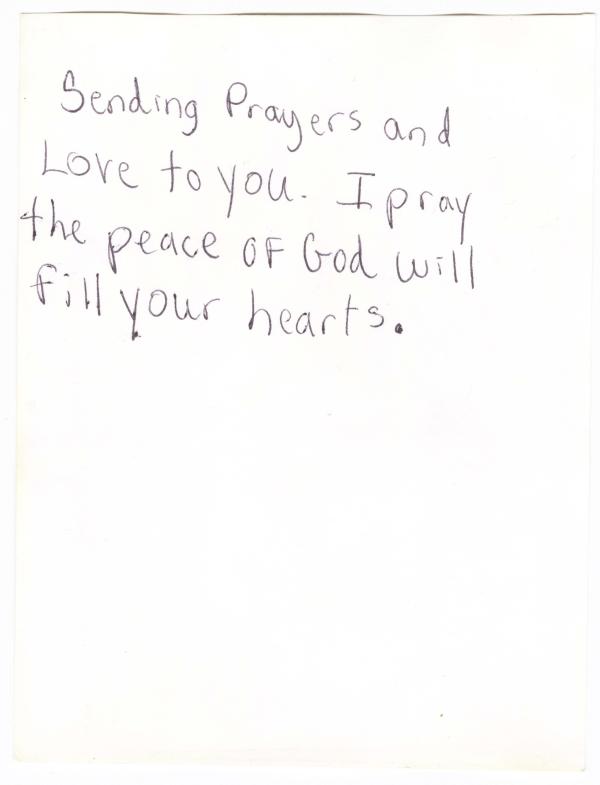 Sending Prayers and
Love to you. I pray
the peace of God will
fill your hearts.